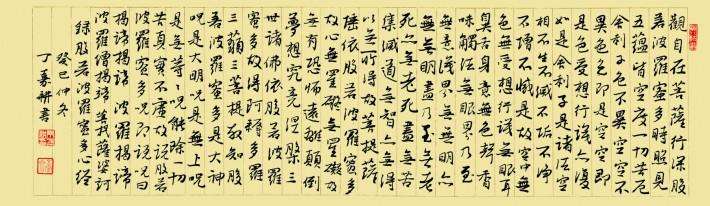 觀自在菩薩行深般
若波羅蜜多時照見
五蘊皆空度一切苦厄
舍利子色不異空空不
異色色即是空空即
是色受想行識亦復
如是舍利子是諸法空
相不生不滅不垢不淨
不增不減是故空中無
色無受想行識無眼耳
鼻舌身意無色聲香
味觸法無眼界乃至
無意識界無無明亦
無無明盡乃至無老
死亦無老死盡無苦
集滅道無智亦無得
以無所得故菩提薩
埵依般若波羅蜜多
故心無罣礙無罣礙故
無有恐怖遠離顛倒
夢想究竟涅槃三
世諸佛依般若波羅
蜜多故得阿耨多羅
三藐三菩提故知般
若波羅蜜多是大神
呪是大明呪是無上呪
是無等等呪能除一切
苦真實不虛故說般若
波羅蜜多呪即說呪曰
揭諦揭諦波羅揭諦
波羅僧揭諦菩提薩婆訶
錄般若波羅蜜多心經
癸巳仲冬
丁嘉耕書